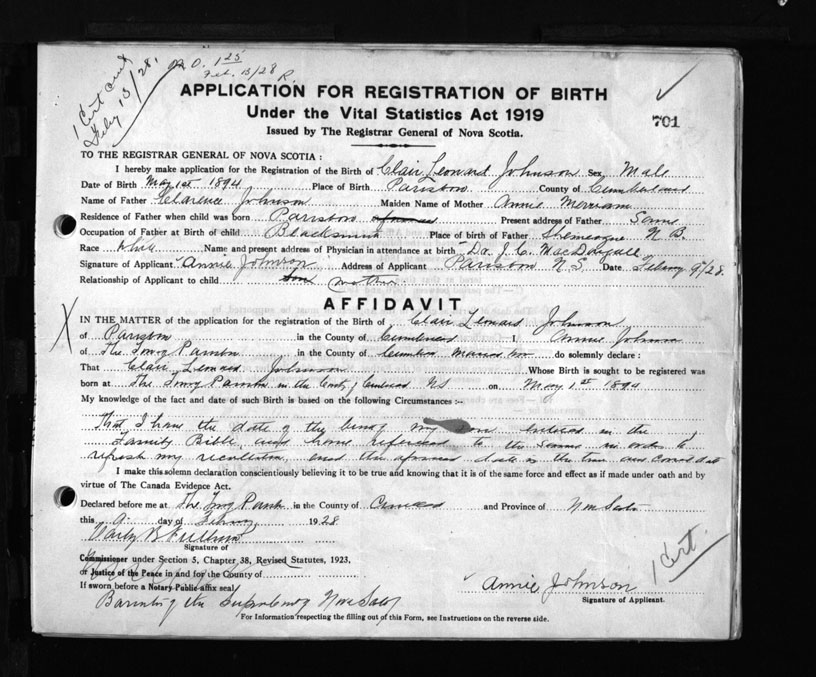 1 Cert sent
Feby 13/28.
P.O. 1 25
Feb. 13/28 R.
APPLICATION FOR REGISTRATION OF BIRTH
Under the Vital Statistics Act 1919
Issued by The Registrar General of Nova Scotia.
701
TO THE REGISTRAR GENERAL OF NOVA SCOTIA :
I hereby make application for the Registration of the Birth of Clair Leonard Johnson Sex Male
Date of Birth May 1st 1894 Place of Birth Parrsboro County of Cumberland
Name of Father Clarence Johnson Maiden Name of Mother Annie Merriam
Residence of Father when child was born Parrsboro Present address of Father Same
Occupation of Father at Birth of child Blacksmith Place of birth of Father Shemogue N B.
Race White Name and present address of Physician in attendance at birth Dr. J. C. MacDougall
Signature of Applicant Annie Johnson Address of Applicant Parrsboro N S. Date Febry 9/28.
Relationship of Applicant to child son mother
AFFIDAVIT
IN THE MATTER of the application for the registration of the Birth of Clair Leonard Johnson
of Parrsboro in the County of Cumberland I Annie Johnson
of The Town of Parrsboro in the County of Cumberland do solemnly declare :
That Clair Leonard Johnson Whose Birth is sought to be registered was
born at The Town of Parrsboro in the County of Cumberland N S on May 1st 1894
My knowledge of the fact and date of such Birth is based on the following Circumstances :-
That I have the date of the birth of my son entered in the
Family Bible, and have referred to the same in order to
refresh my recollection, and the aforesaid date is the true and correct date
I make this solemn declaration conscientiously believing it to be true and knowing that it is of the same force and effect as if made under oath and by
virtue of The Canada Evidence Act.
Declared before me at The Town of Parrsboro in the County of Cumberland and Province of Nova Scotia
this 9 day of Febry 1928
Signature of
Commissioner under Section 5, Chapter 38, Revised Statutes, 1923,
or Justice of the Peace in and for the County of
If sworn before a Notary Public affix seal
Barrister of the Supreme Court of Nova Scotia
Annie Johnson
Signature of Applicant.
1 Cert.
For Information respecting the filling out of this Form, see Instructions on the reverse side.